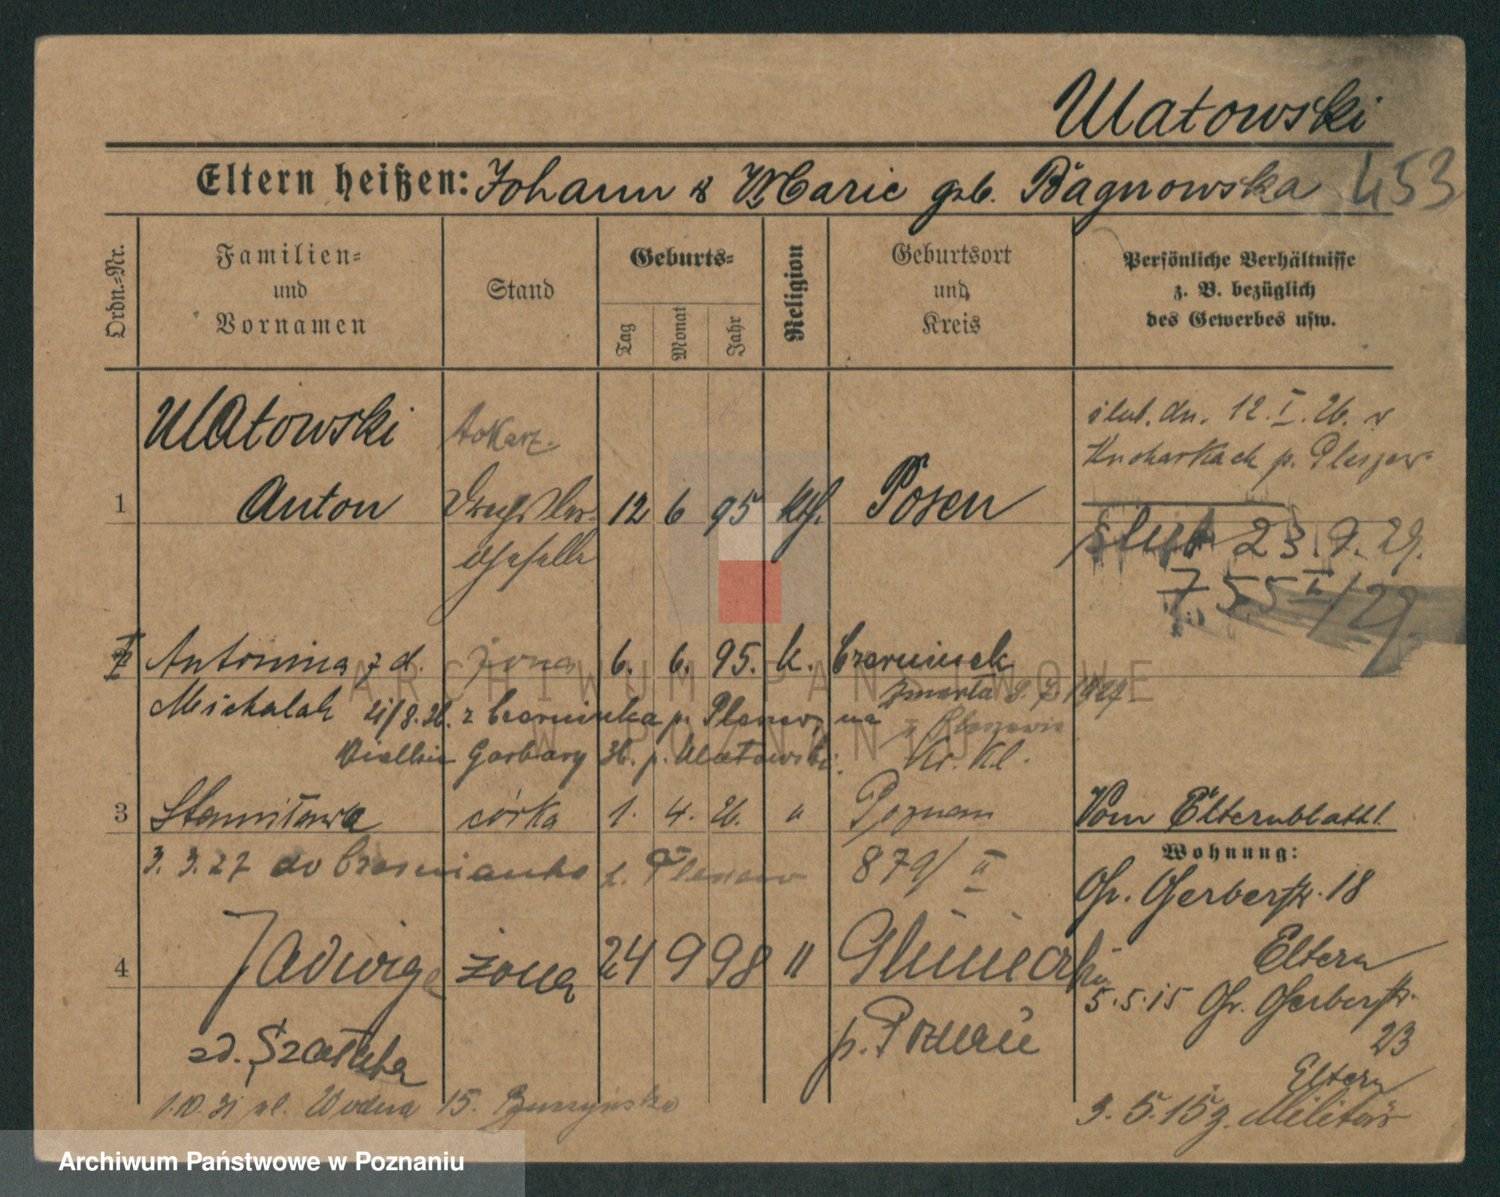 Ulatowski
Eltern heißen: Johann & Marie geb. Bągnowska 453
Ordn.=Nr.
Familien=
und
Vornamen
Stand
Geburts=
Tag
Monat
Jahr
Religion
Geburtsort
und
Kreis
Persönliche Verhältnisse
z. B. bezüglich
des Gewerbes usw.
Ulatowski
tokarz
ślub. dn. 12. I. 26. w
p. Pleszew
1 Anton 12 6 95 kth. Posen
ślub 23. 9. 29.
755 I/29
Antonina z d. żona 6. 6. 95. k. Czerminek
Michalak 21/8. 26. z Czerminka p. Pleszew, na
zmarła
Wielkie Garbary 36. p. Ulatowski.
3 Stanisława córka 1. 4. 26. " Poznań
Vom Elternblatt!
3. 3. 27 do Czerminka p. Pleszew 879/II
Wohnung:
Gr. Gerberstr. 18
Eltern
4 Jadwiga żona 24 9 98 "
5. 5. 15 Gr. Gerberstr.
23
zd. Szałata
p. Poznań
Eltern
1. 10. 31 ul. Wodna 15.
3. 5. 15 z. Militär
ARCHIWUM PAŃSTWOWE
W POZNANIU
Archiwum Państwowe w Poznaniu